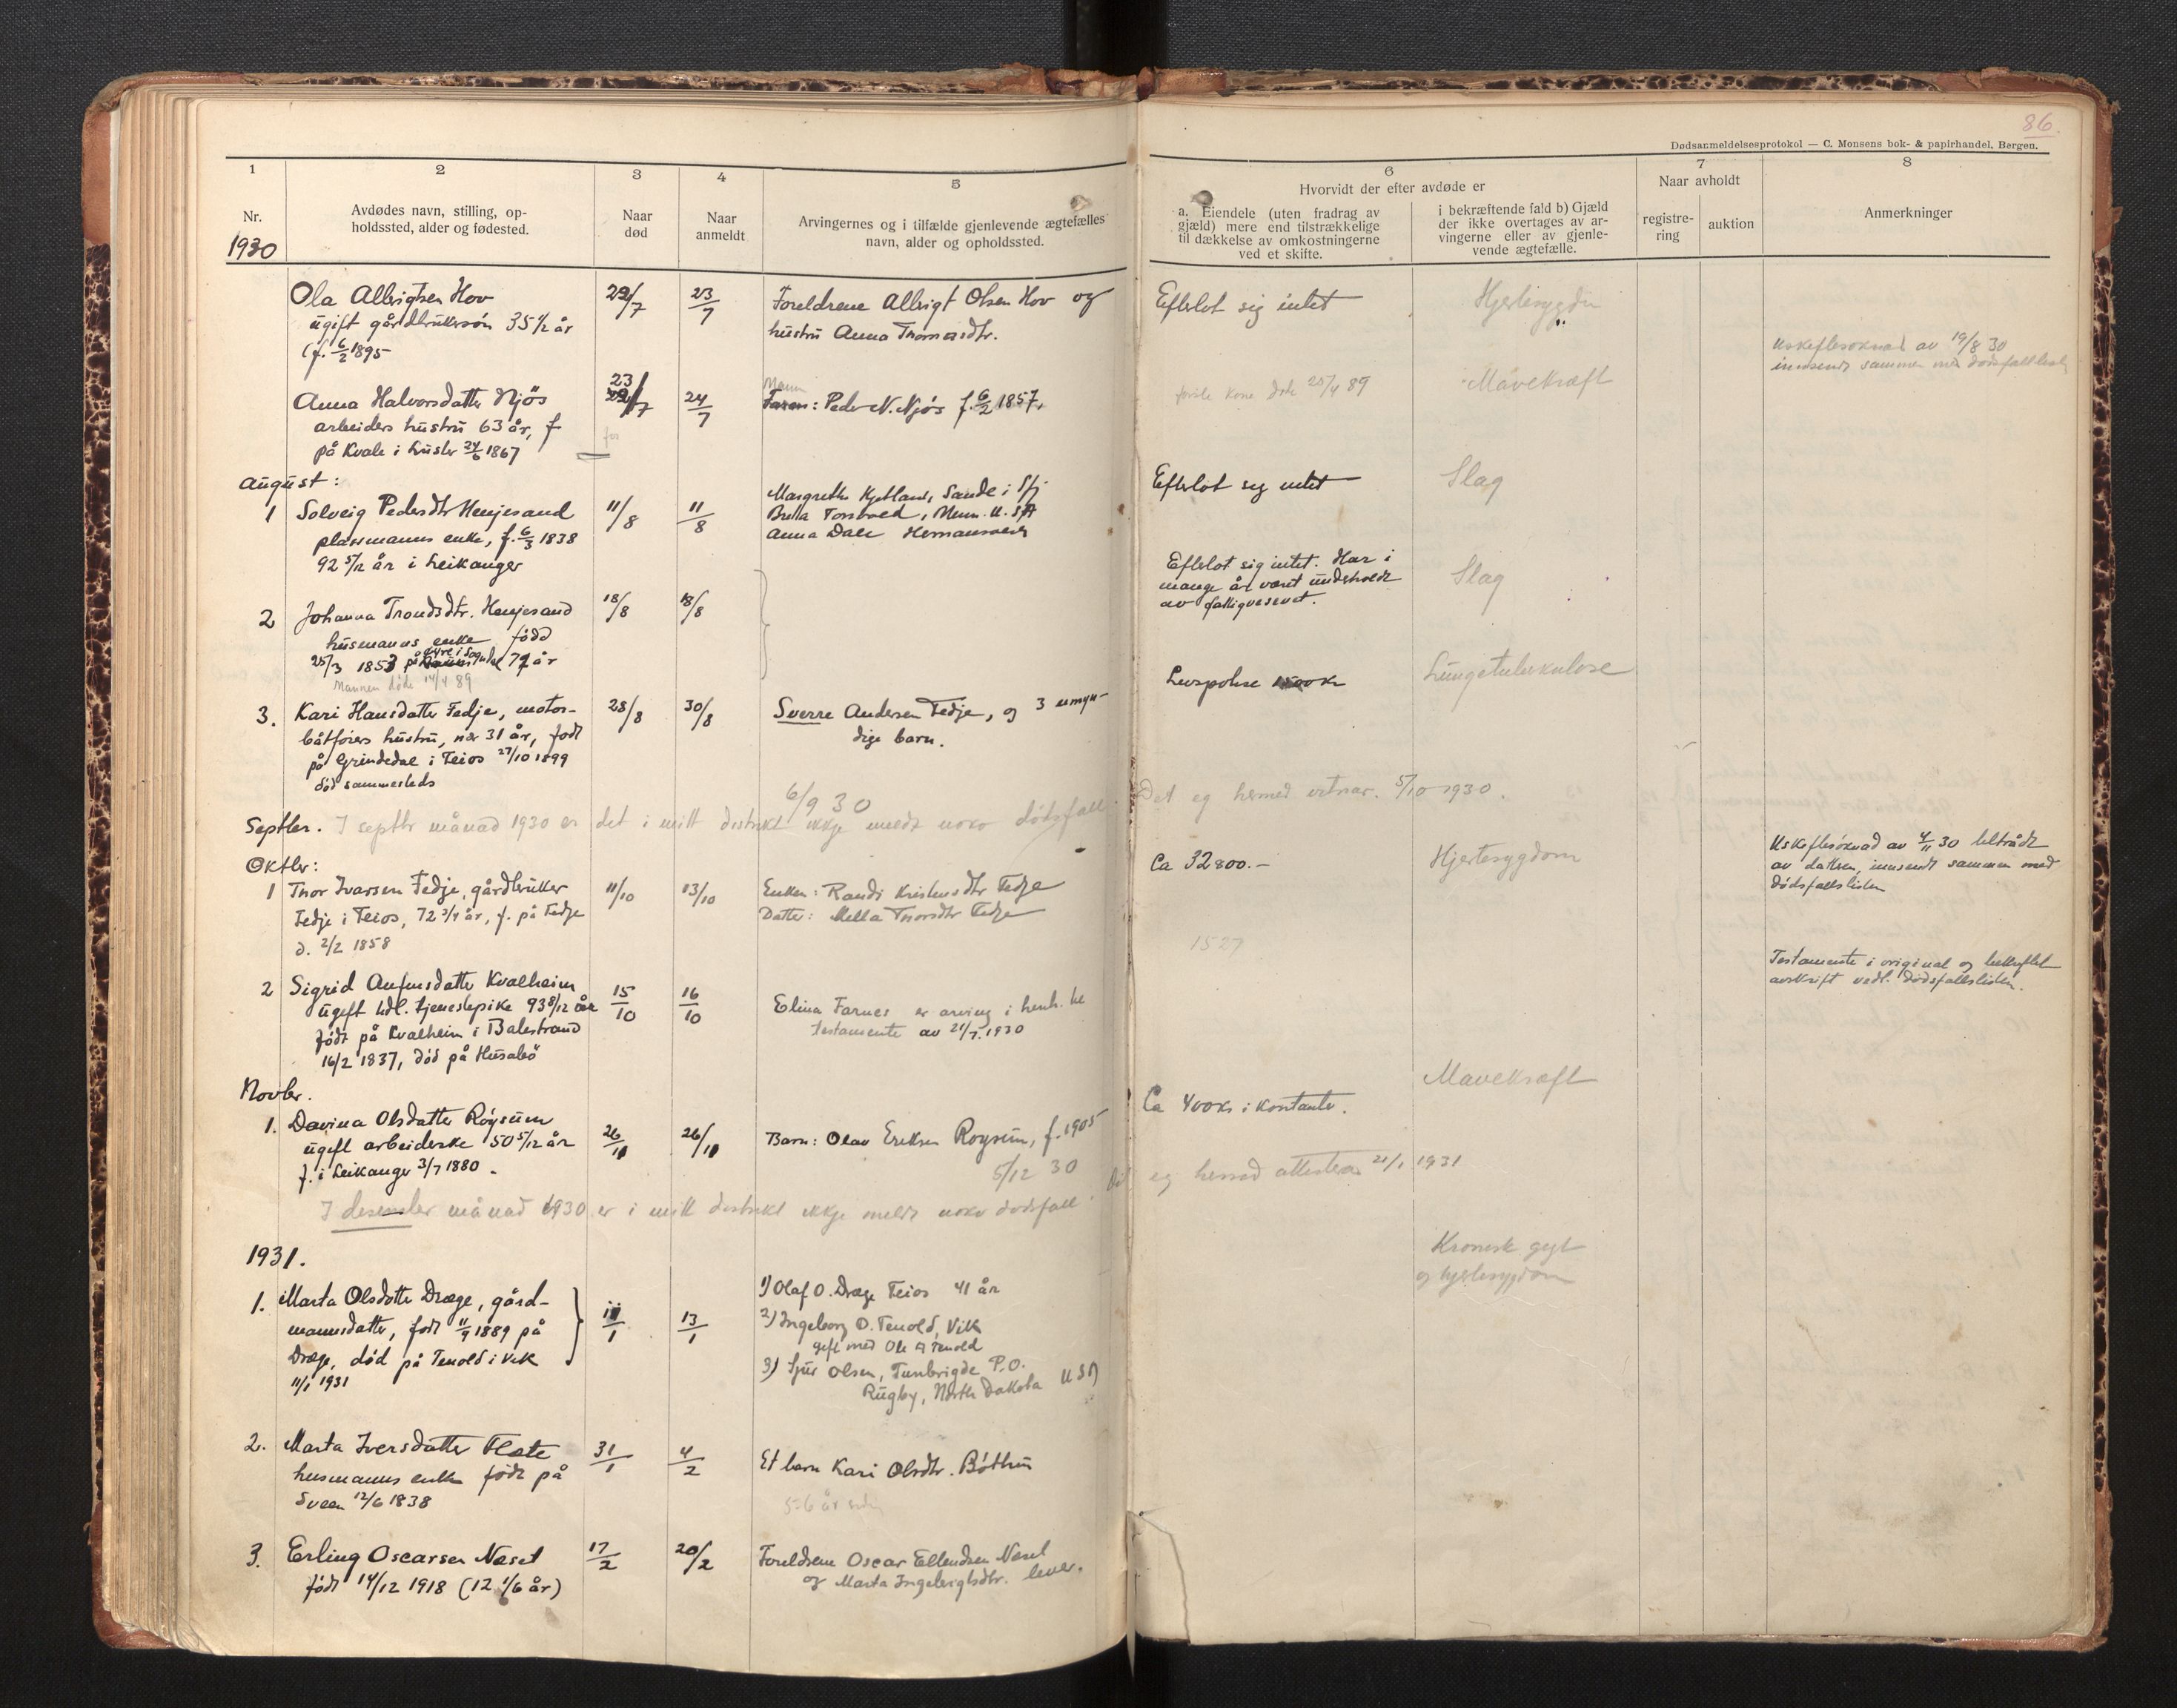 86.
Dødsanmeldelsesprotokol — C. Monsens bok- & papirhandel, Bergen.
1
2
3
4
5
6
7
8
Nr.
1930
Avdødes navn, stilling, op-
holdssted, alder og fødested.
Naar
død
Naar
anmeldt
Arvingernes og i tilfælde gjenlevende ægtefælles
navn, alder og opholdssted.
Hvorvidt der efter avdøde er
a. Eiendele (uten fradrag av
gjæld) mere end tilstrækkelige
til dækkelse av omkostningerne
ved et skifte.
i bekræftende fald b) Gjæld
der ikke overtages av ar-
vingerne eller av gjenle-
vende ægtefælle.
Naar avholdt
registre-
ring
auktion
Anmerkninger
Ola Albrigtsen Hov
ugift gårdbrukersøn 35 1/2 år
(f. 6/2 1895
22/7
23/7
Foreldrene Albrigt Olsen Hov og
hustru Anna Thomasdtr.
Efterlot sig intet
Hjertesygdom
Anna Halvorsdatter Njøs
arbeiders hustru 63 år, f
på Kvale i Luster 24/6 1867
23/7
24/7
Mann
Faren: Peder N. Njøs f. 6/2 1857.
første kone døde 25/4 89
Mavekræft
Uskiftesøknad av 19/8 30
innsendt sammen med dødsfallsliste
August:
1 Solveig Pedersdtr Henjesand
plassmanns enke, f. 6/3 1838
92 5/12 år i Leikanger
11/8
11/8
Margrethe Kjetland, Sande i Sfj
Brita
Anna Dale Hermansverk
Efterlot sig intet
Slag
2 Johanna Trondsdtr. Henjesand
husmanns enke född
25/3 1853 på i Sogndal år
Mannen döde 14/4 89
18/8
18/8
Efterlot sig intet. Har i
mange år været underholdt
av fattigvesenet.
Slag
3. Kari Hansdatter Fedje, motor-
båtförers hustru, nær 31 år, født
på Grindedal i Feios 27/10 1899
död sammesteds
28/8
30/8
Sverre Andersen Fedje, og 3 umyn-
dige barn.
Lungetuberkulose
6/9 30
Septber. I septbr månad 1930 er det i mitt distrikt ikkje meldt noko dödsfall.
Det eg hermed vitnar. 5/10 1930.
Oktber:
1 Thor Ivarsen Fedje, gårdbruker
Fedje i Feios, 72 3/4 år, f. på Fedje
d. 2/2 1858
11/10
13/10
Enken: Randi Kristensdtr Fedje
Datter: Mella Thorsdtr Fedje
Ca 32800.-
Hjertesygdom
Uskiftesøknad av 4/11 30 tiltrådt
av datteren, innsendt sammen med
dödsfallslisten
1527
2 Sigrid Anfinsdatter Kvalheim
ugift tjenestepike 93 8/12 år
född på Kvalheim i Balestrand
16/2 1837, död på Husabö
15/10
16/10
Elina Farnes er arving i henh. til
testamente av 21/7. 1930
Testamente i original og bekreftet
avskrift vedl. dödsfallslisten.
Novbr.
1. Davina Olsdatter Röysum
ugift arbeiderske 50 5/12 år
f. i Leikanger 3/7 1880.
26/11
26/11
Barn: Olav Eriksen Roysum, f. 1905
Ca 400 kr i kontanter.
Mavekræft
5/12 30
I desember månad 1930 er i mitt distrikt ikkje meldt noko dödsfall.
Det eg hermed attesterar 21/1 1931
1931.
1. Marta Olsdotter Dræge, gård-
mannsdatter, født 11/9 1889 på
Dræge, død på Tenold i Vik
11/1 1931
11/1
13/1
1) Olaf O. Dræge Feios 41 år
2) Ingeborg O. Tenold, Vik
gift med Ole Tenold
3) Sjur Olsen, Tunbrigde P.O.
Rugby, North Dakota USA
Kronisk gigt
og hjertesygdom
2. Marta Iversdatter Flete
husmanns enke født på
Sveen 12/6 1838
31/1
4/2
Et barn Kari Olsdtr. Böthun
5-6 år siden
3. Erling Oscarsen Næset
født 14/12 1918 (12 1/6 år)
17/2
20/2
Foreldrene Oscar Ellendsen Næset
og Marta Ingebrigtsdtr. lever.